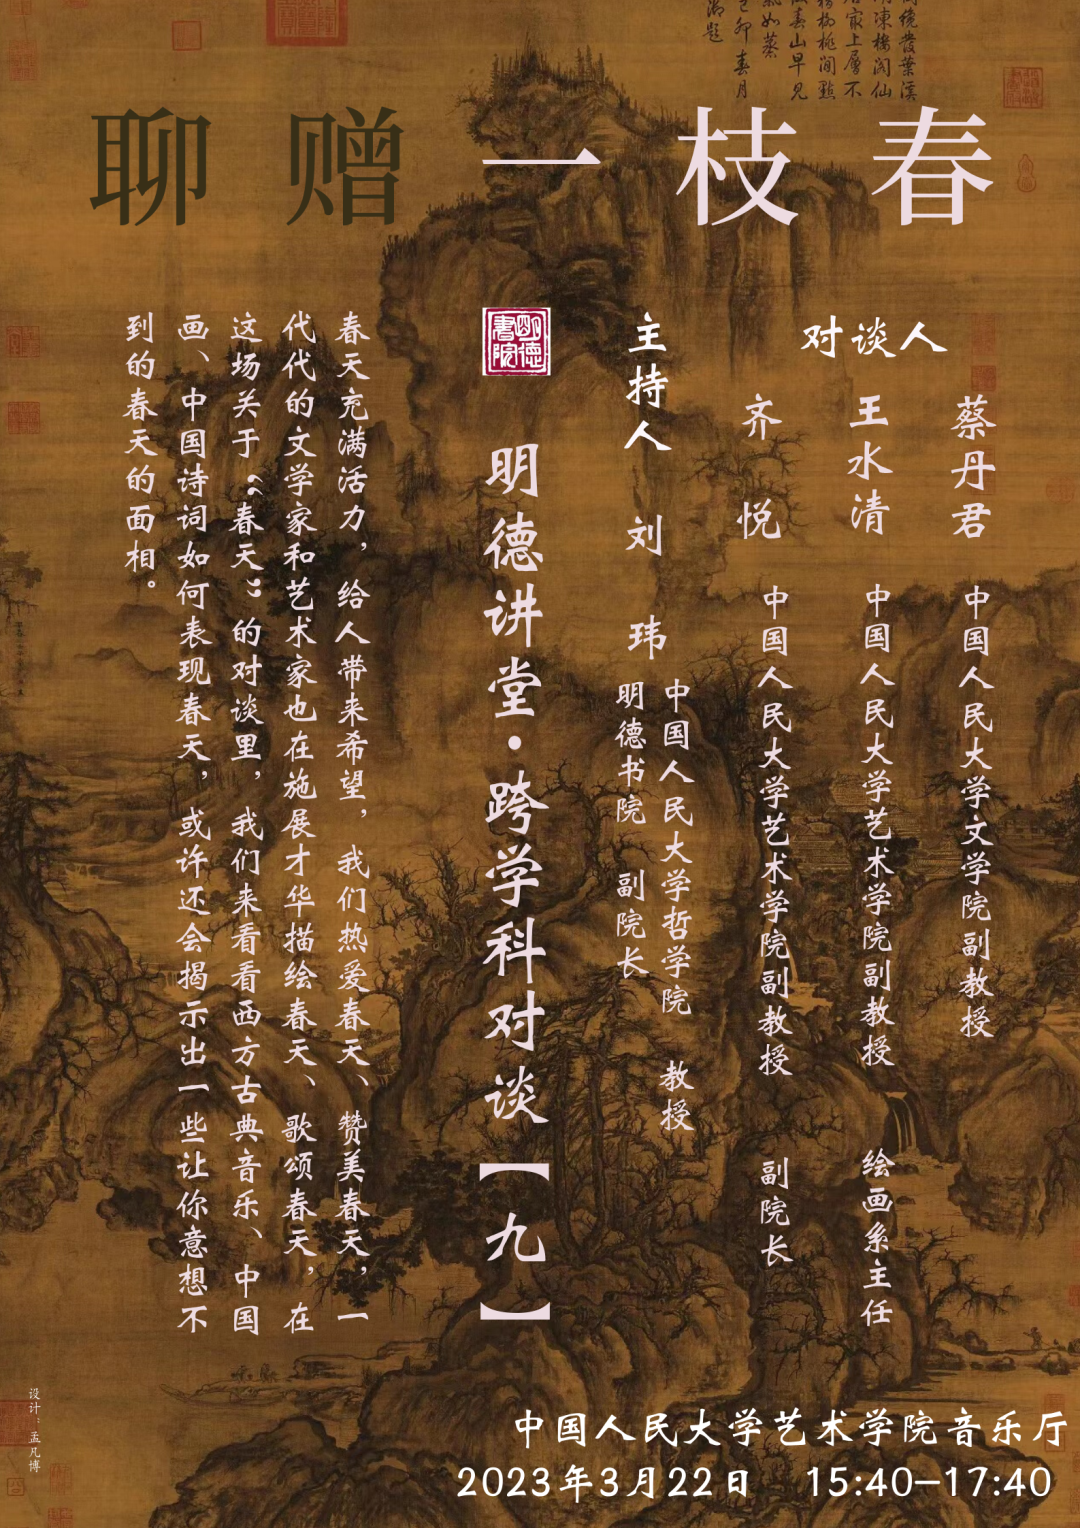 發葉溪
凍樓閣仙
居最上層不
柳桃閒點
春山早見
氣如蒸
己卯春月
御題
聊赠一枝春
对谈人
蔡丹君 中国人民大学文学院副教授
王水清 中国人民大学艺术学院副教授 绘画系主任
齐悦 中国人民大学艺术学院副教授 副院长
主持人 刘玮
中国人民大学哲学院 教授
明德书院 副院长
明德書院
明德讲堂·跨学科对谈【九】
春天充满活力,给人带来希望,我们热爱春天、赞美春天,一
代代的文学家和艺术家也在施展才华描绘春天、歌颂春天,在
这场关于“春天”的对谈里,我们来看看西方古典音乐、中国
画、中国诗词如何表现春天,或许还会揭示出一些让你意想不
到的春天的面相。
设计:孟凡博
中国人民大学艺术学院音乐厅
2023年3月22日 15:40—17:40